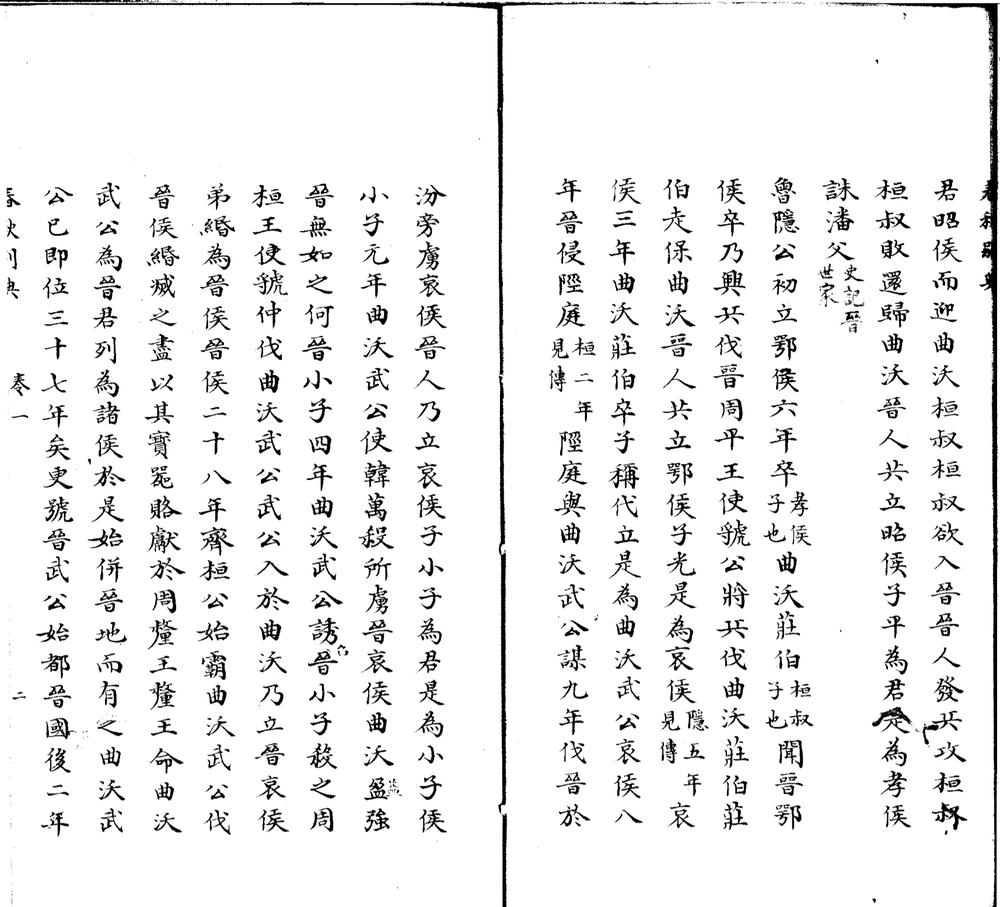 春秋別典
君昭侯而迎曲沃桓叔桓叔欲入晉晉人發兵攻桓叔
桓叔敗還歸曲沃晉人共立昭侯子平為君是為孝侯
誅潘父史記晉世家
魯隱公初立鄂侯六年卒孝侯子也曲沃莊伯桓叔子也聞晉鄂
侯卒乃興兵伐晉周平王使虢公將兵伐曲沃莊伯莊
伯走保曲沃晉人共立鄂侯子光是為哀侯隱五年見傳哀
侯三年曲沃莊伯卒子稱代立是為曲沃武公哀侯八
年晉侵陘庭桓二年見傳陘庭與曲沃武公謀九年伐晉於
汾旁虜哀侯晉人乃立哀侯子小子為君是為小子侯
小子元年曲沃武公使韓萬殺所虜晉哀侯曲沃益強
晉無如之何晉小子四年曲沃武公誘晉小子殺之周
桓王使虢仲伐曲沃武公武公入於曲沃乃立晉哀侯
弟緡為晉侯晉侯二十八年齊桓公始霸曲沃武公伐
晉侯緡滅之盡以其寶器賂獻於周釐王釐王命曲沃
武公為晉君列為諸侯於是始併晉地而有之曲沃武
公已即位三十七年矣更號晉武公始都晉國後二年
春秋別典 卷一 二